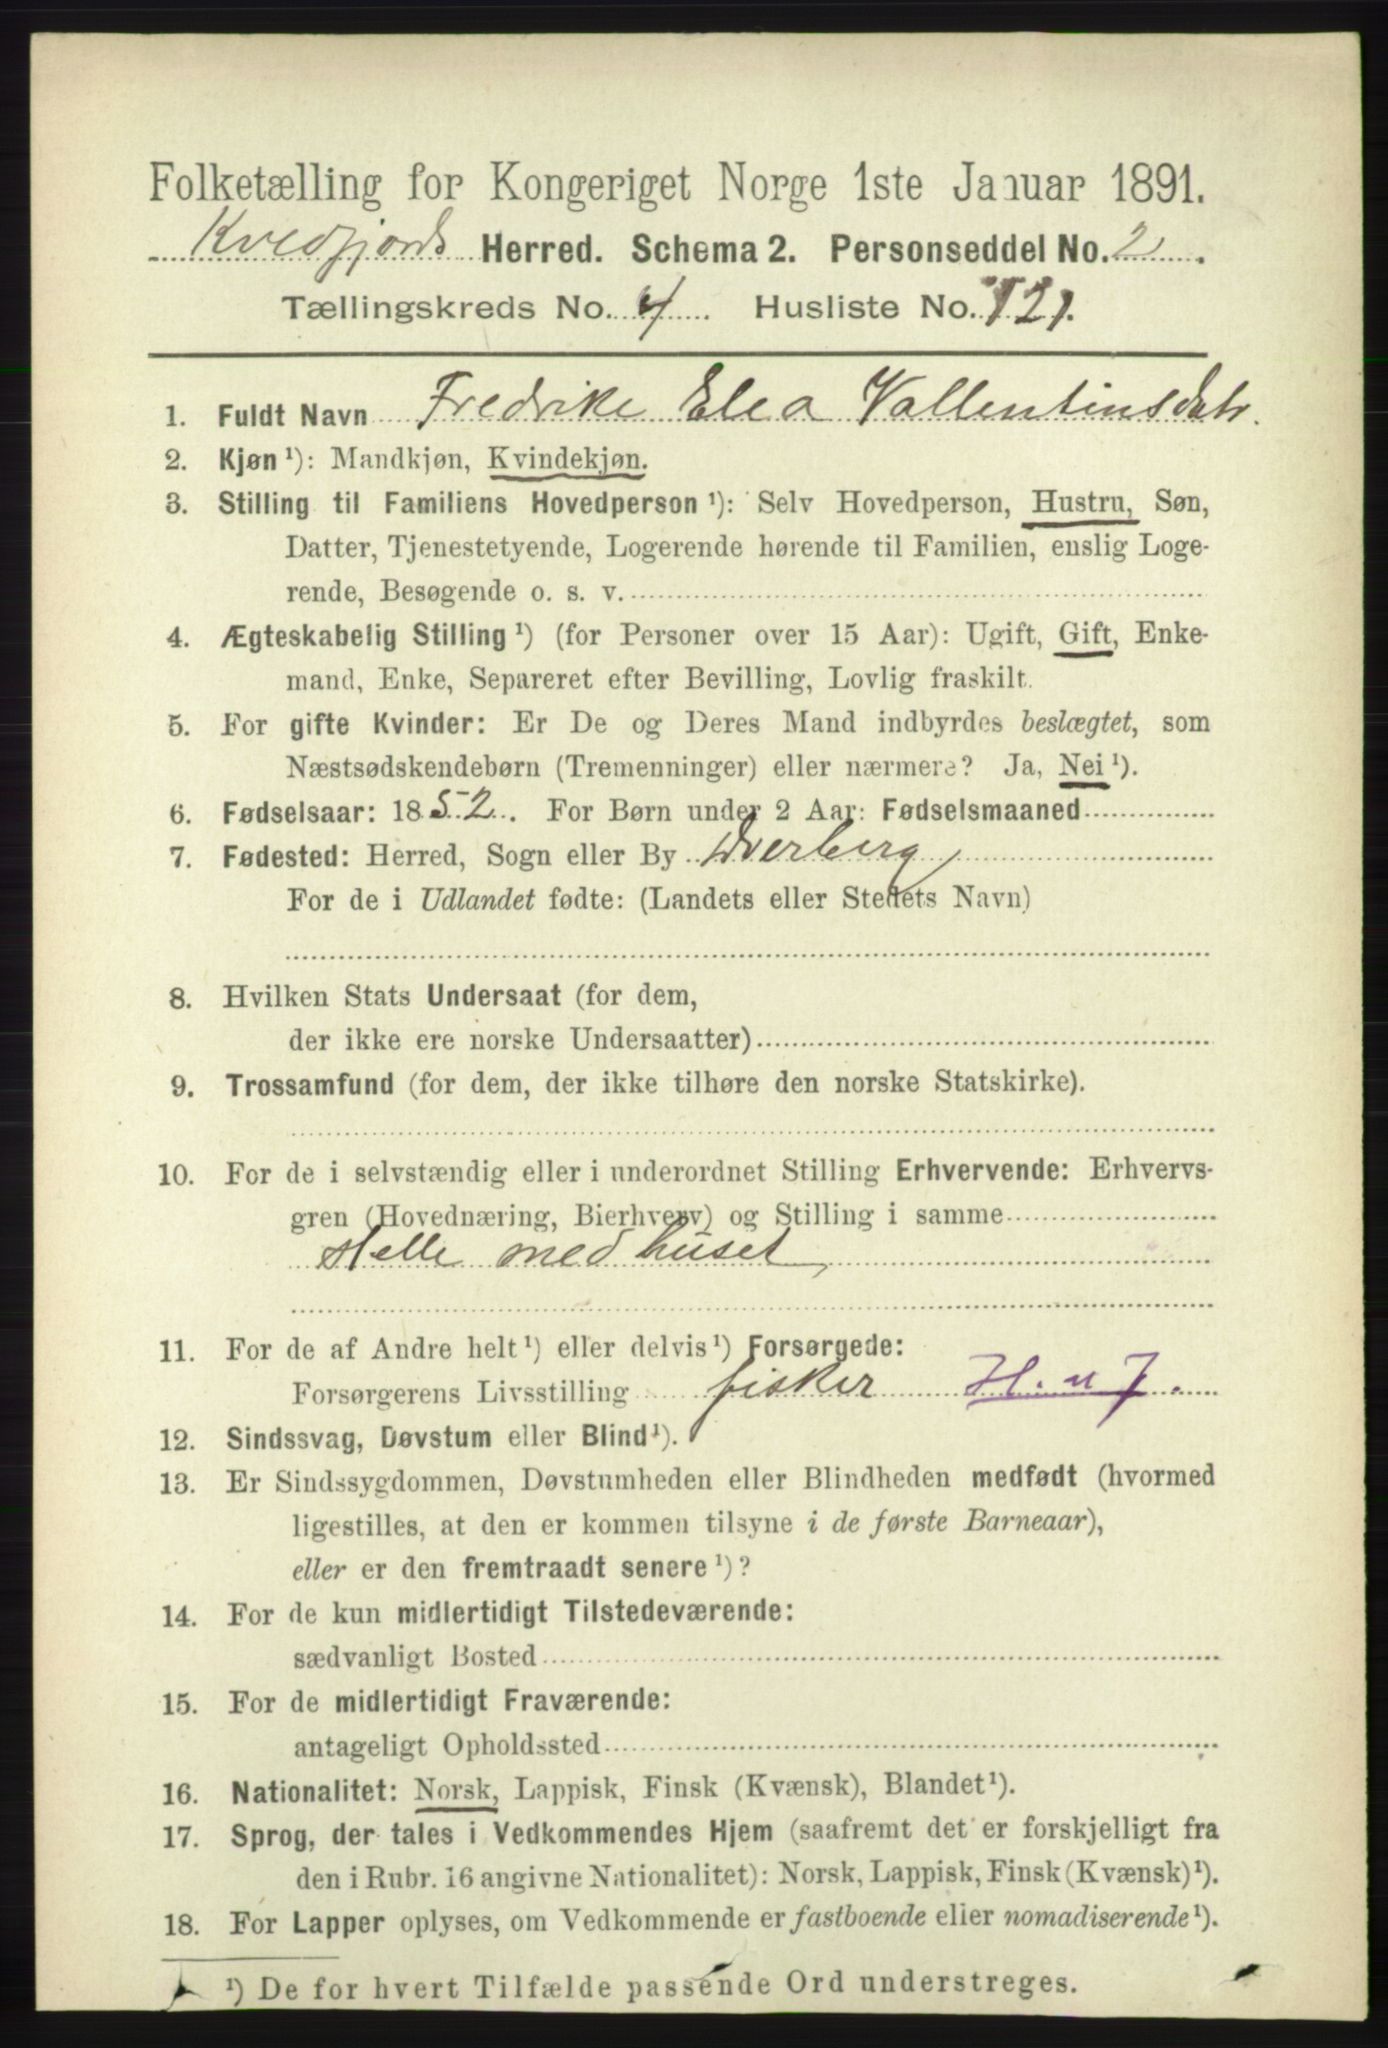 Folketælling for Kongeriget Norge 1ste Januar 1891.
Kvedfjords Herred. Schema 2. Personseddel No. 2.
Tællingskreds No. 4 Husliste No. 121.
1. Fuldt Navn Fredrike Elea Vallentinsdatr.
2. Kjøn ¹): Mandkjøn, Kvindekjøn.
3. Stilling til Familiens Hovedperson ¹): Selv Hovedperson, Hustru, Søn,
Datter, Tjenestetyende, Logerende hørende til Familien, enslig Loge-
rende, Besøgende o. s. v.
4. Ægteskabelig Stilling ¹) (for Personer over 15 Aar): Ugift, Gift, Enke-
mand, Enke, Separeret efter Bevilling, Lovlig fraskilt.
5. For gifte Kvinder: Er De og Deres Mand indbyrdes beslægtet, som
Næstsødskendebørn (Tremenninger) eller nærmere? Ja, Nei ¹).
6. Fødselsaar: 1852. For Børn under 2 Aar: Fødselsmaaned
7. Fødested: Herred, Sogn eller By Dverberg
For de i Udlandet fødte: (Landets eller Stedets Navn)
8. Hvilken Stats Undersaat (for dem,
der ikke ere norske Undersaatter)
9. Trossamfund (for dem, der ikke tilhøre den norske Statskirke).
10. For de i selvstændig eller i underordnet Stilling Erhvervende: Erhvervs-
gren (Hovednæring, Bierhverv) og Stilling i samme
stelle med huset
11. For de af Andre helt ¹) eller delvis ¹) Forsørgede:
Forsørgerens Livsstilling fisker H. u 7.
12. Sindssvag, Døvstum eller Blind ¹).
13. Er Sindssygdommen, Døvstumheden eller Blindheden medfødt (hvormed
ligestilles, at den er kommen tilsyne i de første Barneaar),
eller er den fremtraadt senere ¹)?
14. For de kun midlertidigt Tilstedeværende:
sædvanligt Bosted
15. For de midlertidigt Fraværende:
antageligt Opholdssted
16. Nationalitet: Norsk, Lappisk, Finsk (Kvænsk), Blandet ¹).
17. Sprog, der tales i Vedkommendes Hjem (saafremt det er forskjelligt fra
den i Rubr. 16 angivne Nationalitet): Norsk, Lappisk, Finsk (Kvænsk) ¹).
18. For Lapper oplyses, om Vedkommende er fastboende eller nomadiserende ¹).
¹) De for hvert Tilfælde passende Ord understreges.